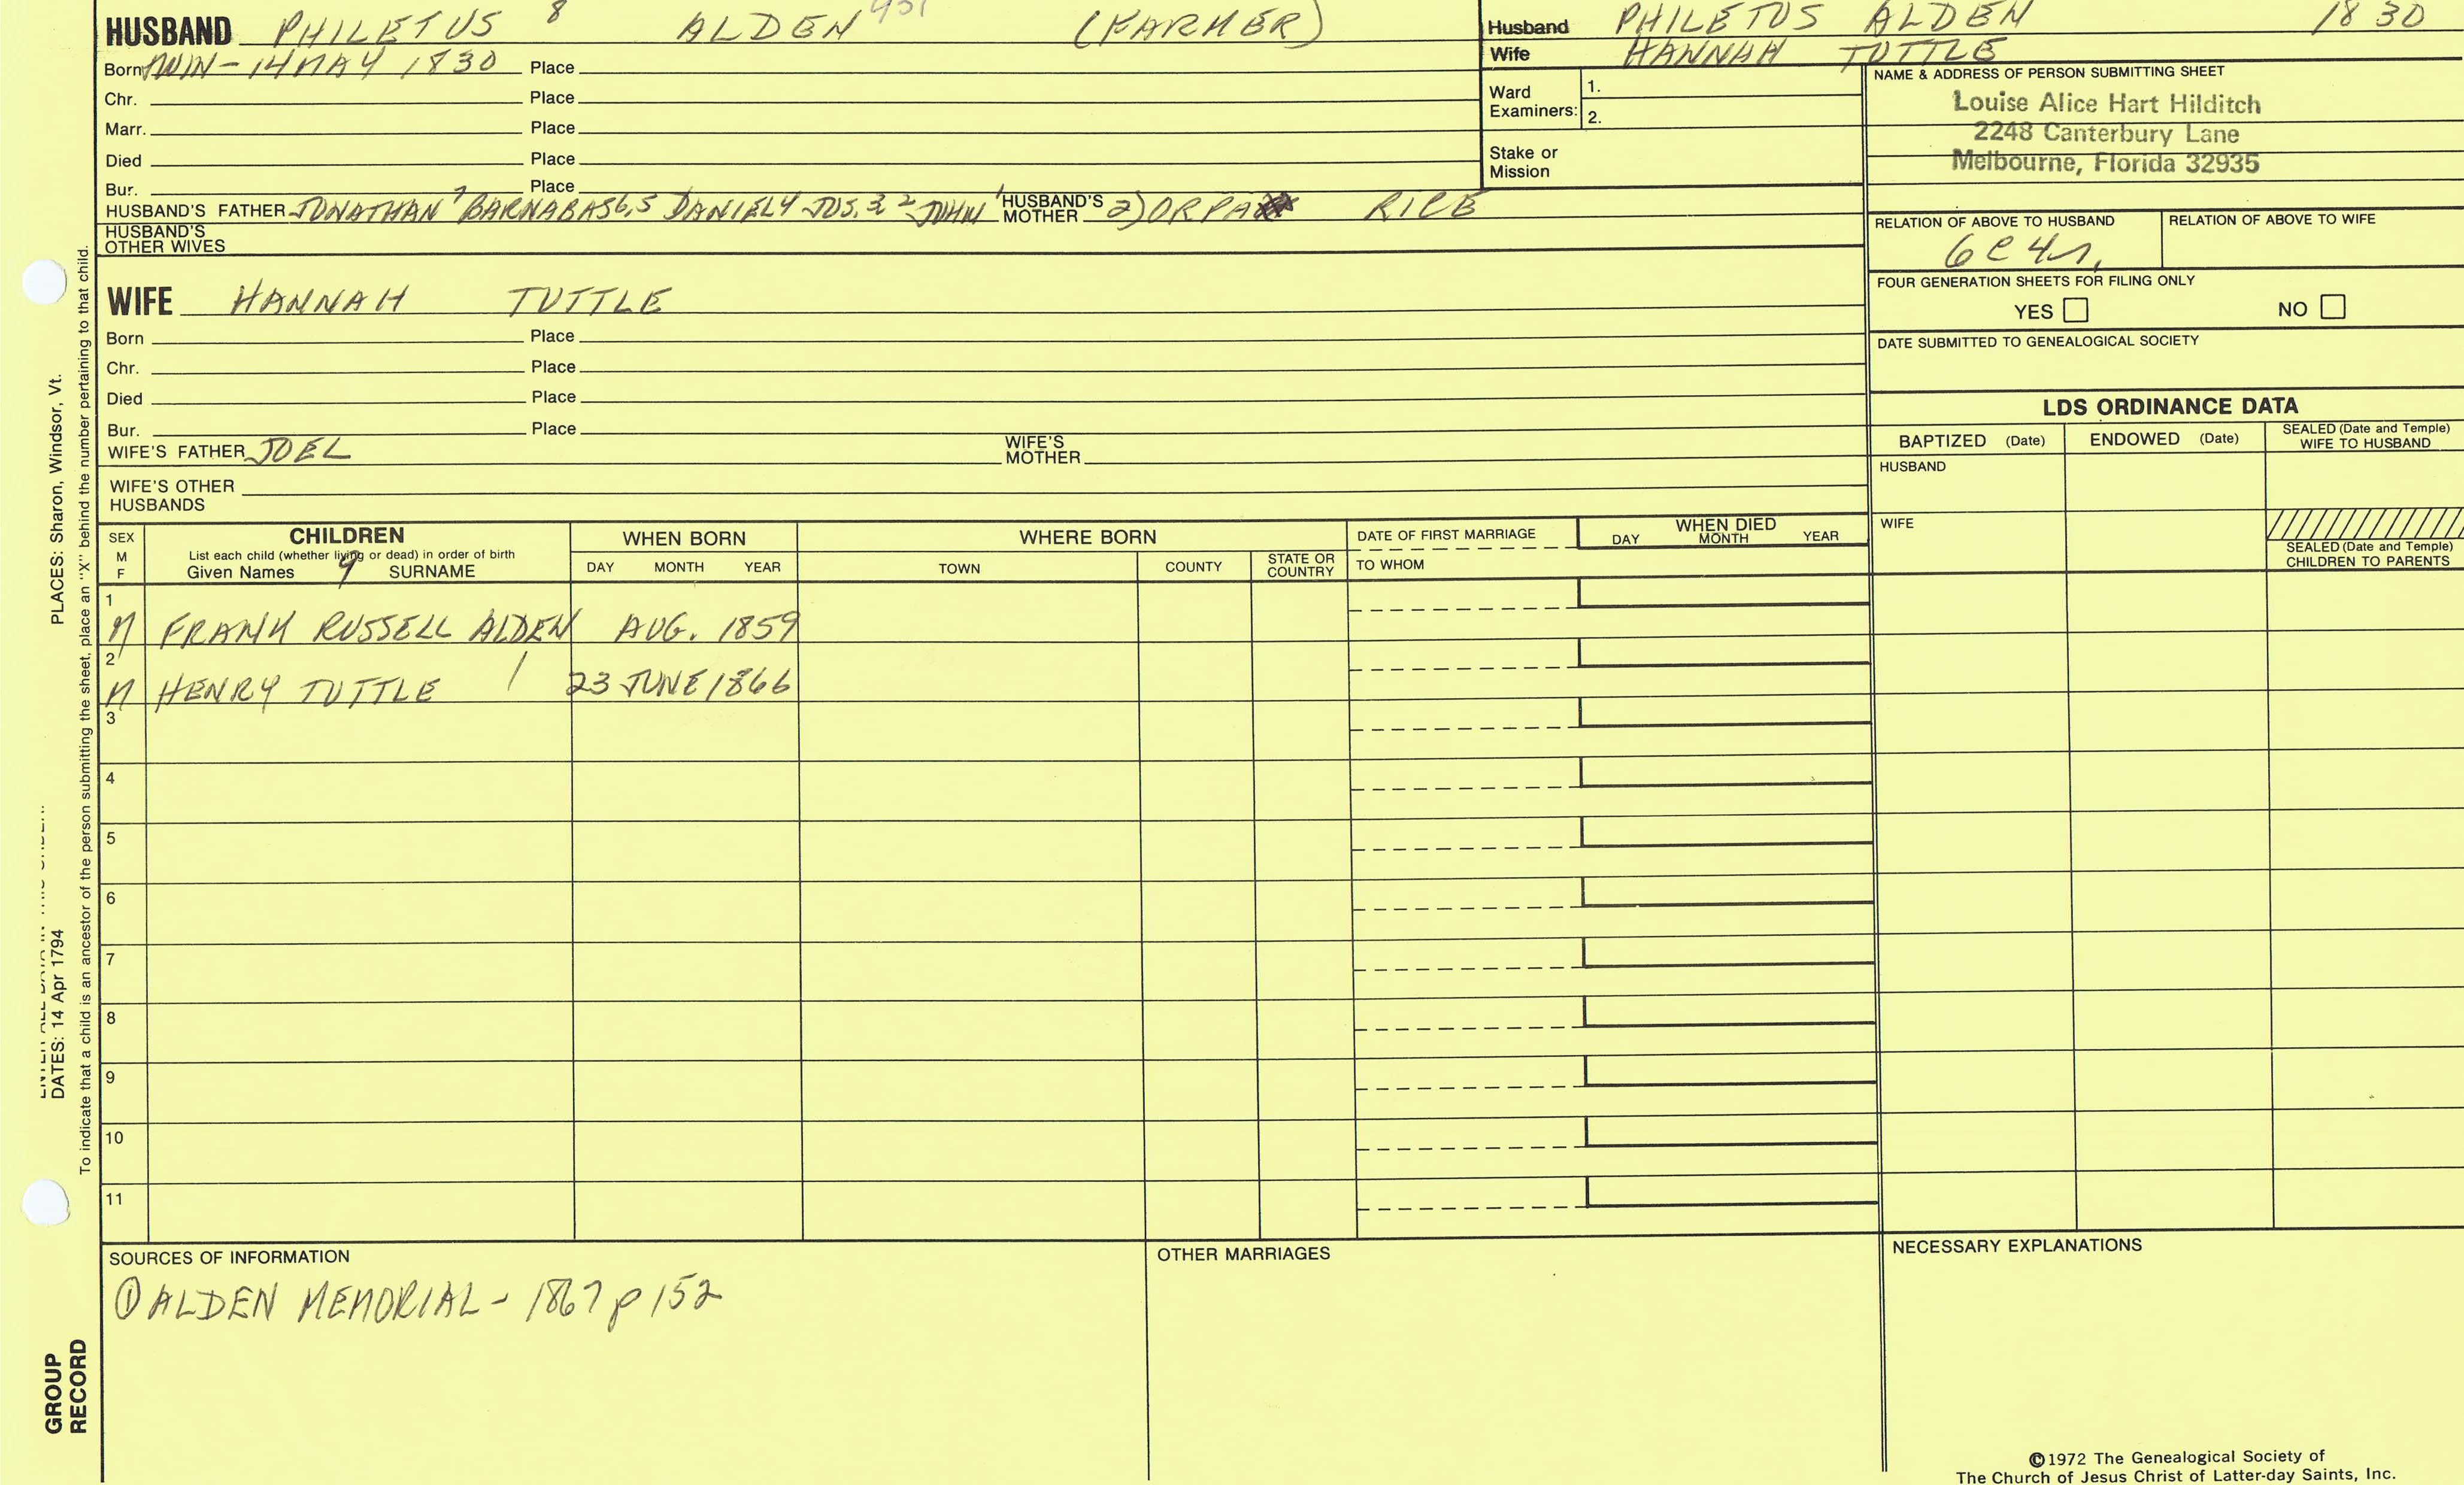 HUSBAND PHILETUS 8 ALDEN 431 (FARMER)
Born TWIN - 14 MAY 1830 Place
Chr. Place
Marr. Place
Died Place
Bur. Place
HUSBAND'S FATHER JONATHAN 7 BARNABAS 6,5 DANIEL 4 JOS. 3 2 JOHN 1 HUSBAND'S MOTHER 2) ORPA RICE
HUSBAND'S OTHER WIVES
Husband PHILETUS ALDEN 1830
Wife HANNAH TUTTLE
Ward Examiners: 1.
2.
Stake or Mission
NAME & ADDRESS OF PERSON SUBMITTING SHEET
Louise Alice Hart Hilditch
2248 Canterbury Lane
Melbourne, Florida 32935
RELATION OF ABOVE TO HUSBAND RELATION OF ABOVE TO WIFE
6C4r.
FOUR GENERATION SHEETS FOR FILING ONLY
YES NO
DATE SUBMITTED TO GENEALOGICAL SOCIETY
WIFE HANNAH TUTTLE
Born Place
Chr. Place
Died Place
Bur. Place
WIFE'S FATHER JOEL WIFE'S MOTHER
WIFE'S OTHER HUSBANDS
LDS ORDINANCE DATA
BAPTIZED (Date) ENDOWED (Date) SEALED (Date and Temple) WIFE TO HUSBAND
HUSBAND
WIFE
SEALED (Date and Temple) CHILDREN TO PARENTS
SEX M F
CHILDREN
List each child (whether living or dead) in order of birth
Given Names 9 SURNAME
WHEN BORN
DAY MONTH YEAR
WHERE BORN
TOWN COUNTY STATE OR COUNTRY
DATE OF FIRST MARRIAGE
TO WHOM
WHEN DIED
DAY MONTH YEAR
1
M FRANK RUSSELL ALDEN AUG. 1859
2
M HENRY TUTTLE / 23 JUNE 1866
3
4
5
6
7
8
9
10
11
SOURCES OF INFORMATION
① ALDEN MEMORIAL - 1867 p 152
OTHER MARRIAGES
NECESSARY EXPLANATIONS
©1972 The Genealogical Society of
The Church of Jesus Christ of Latter-day Saints, Inc.
PLACES: Sharon, Windsor, Vt.
DATES: 14 Apr 1794
To indicate that a child is an ancestor of the person submitting the sheet, place an "X" behind the number pertaining to that child.
GROUP
RECORD